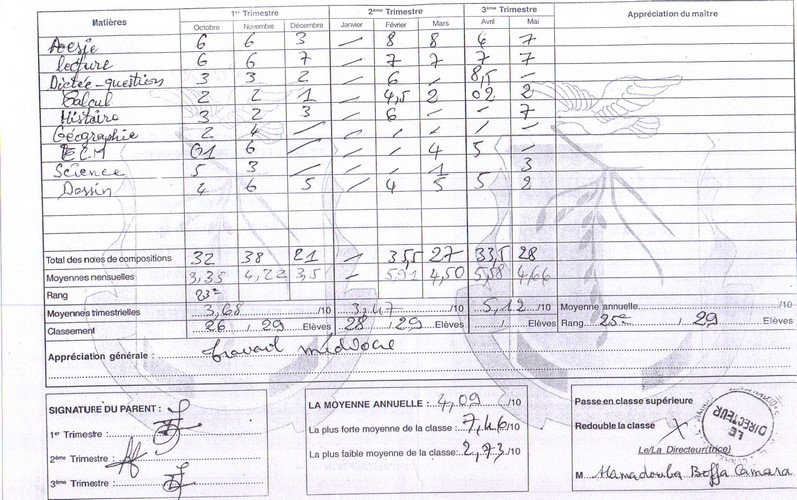 Matières 1er Trimestre 2ème Trimestre 3ème Trimestre Appréciation du maître
Octobre Novembre Décembre Janvier Février Mars Avril Mai
6 6 3 – 8 8 6 7
lecture 6 6 7 – 7 7 7 7
Dictée-question 3 3 2 – 6 – 8,5 –
Calcul 2 2 1 – 4,5 2 02 2
Histoire 3 2 3 – 6 – – 7
Géographie 2 4 – – – – – –
ECM 01 6 – – – 4 5 –
Science 5 3 – – – 1 3
Dessin 4 6 5 – 4 5 5 2
Total des notes de compositions 32 38 21 – 35,5 27 33,5 28
Moyennes mensuelles 3,35 4,22 3,5 – 5,91 4,50 5,58 4,66
Rang
Moyennes trimestrielles 3,68 /10 3,47 /10 5,12 /10 Moyenne annuelle /10
Classement 26 / 29 Elèves 28 / 29 Elèves / Elèves Rang 25e / 29 Elèves
Appréciation générale : travail médiocre
SIGNATURE DU PARENT :
1er Trimestre :
2ème Trimestre :
3ème Trimestre :
LA MOYENNE ANNUELLE : 4,09 /10
La plus forte moyenne de la classe : 7,46 /10
La plus faible moyenne de la classe : 2,73 /10
Passe en classe supérieure
Redouble la classe X
Le/La Directeur(trice)
LE DIRECTEUR
M Mamadouba Boffa Camara